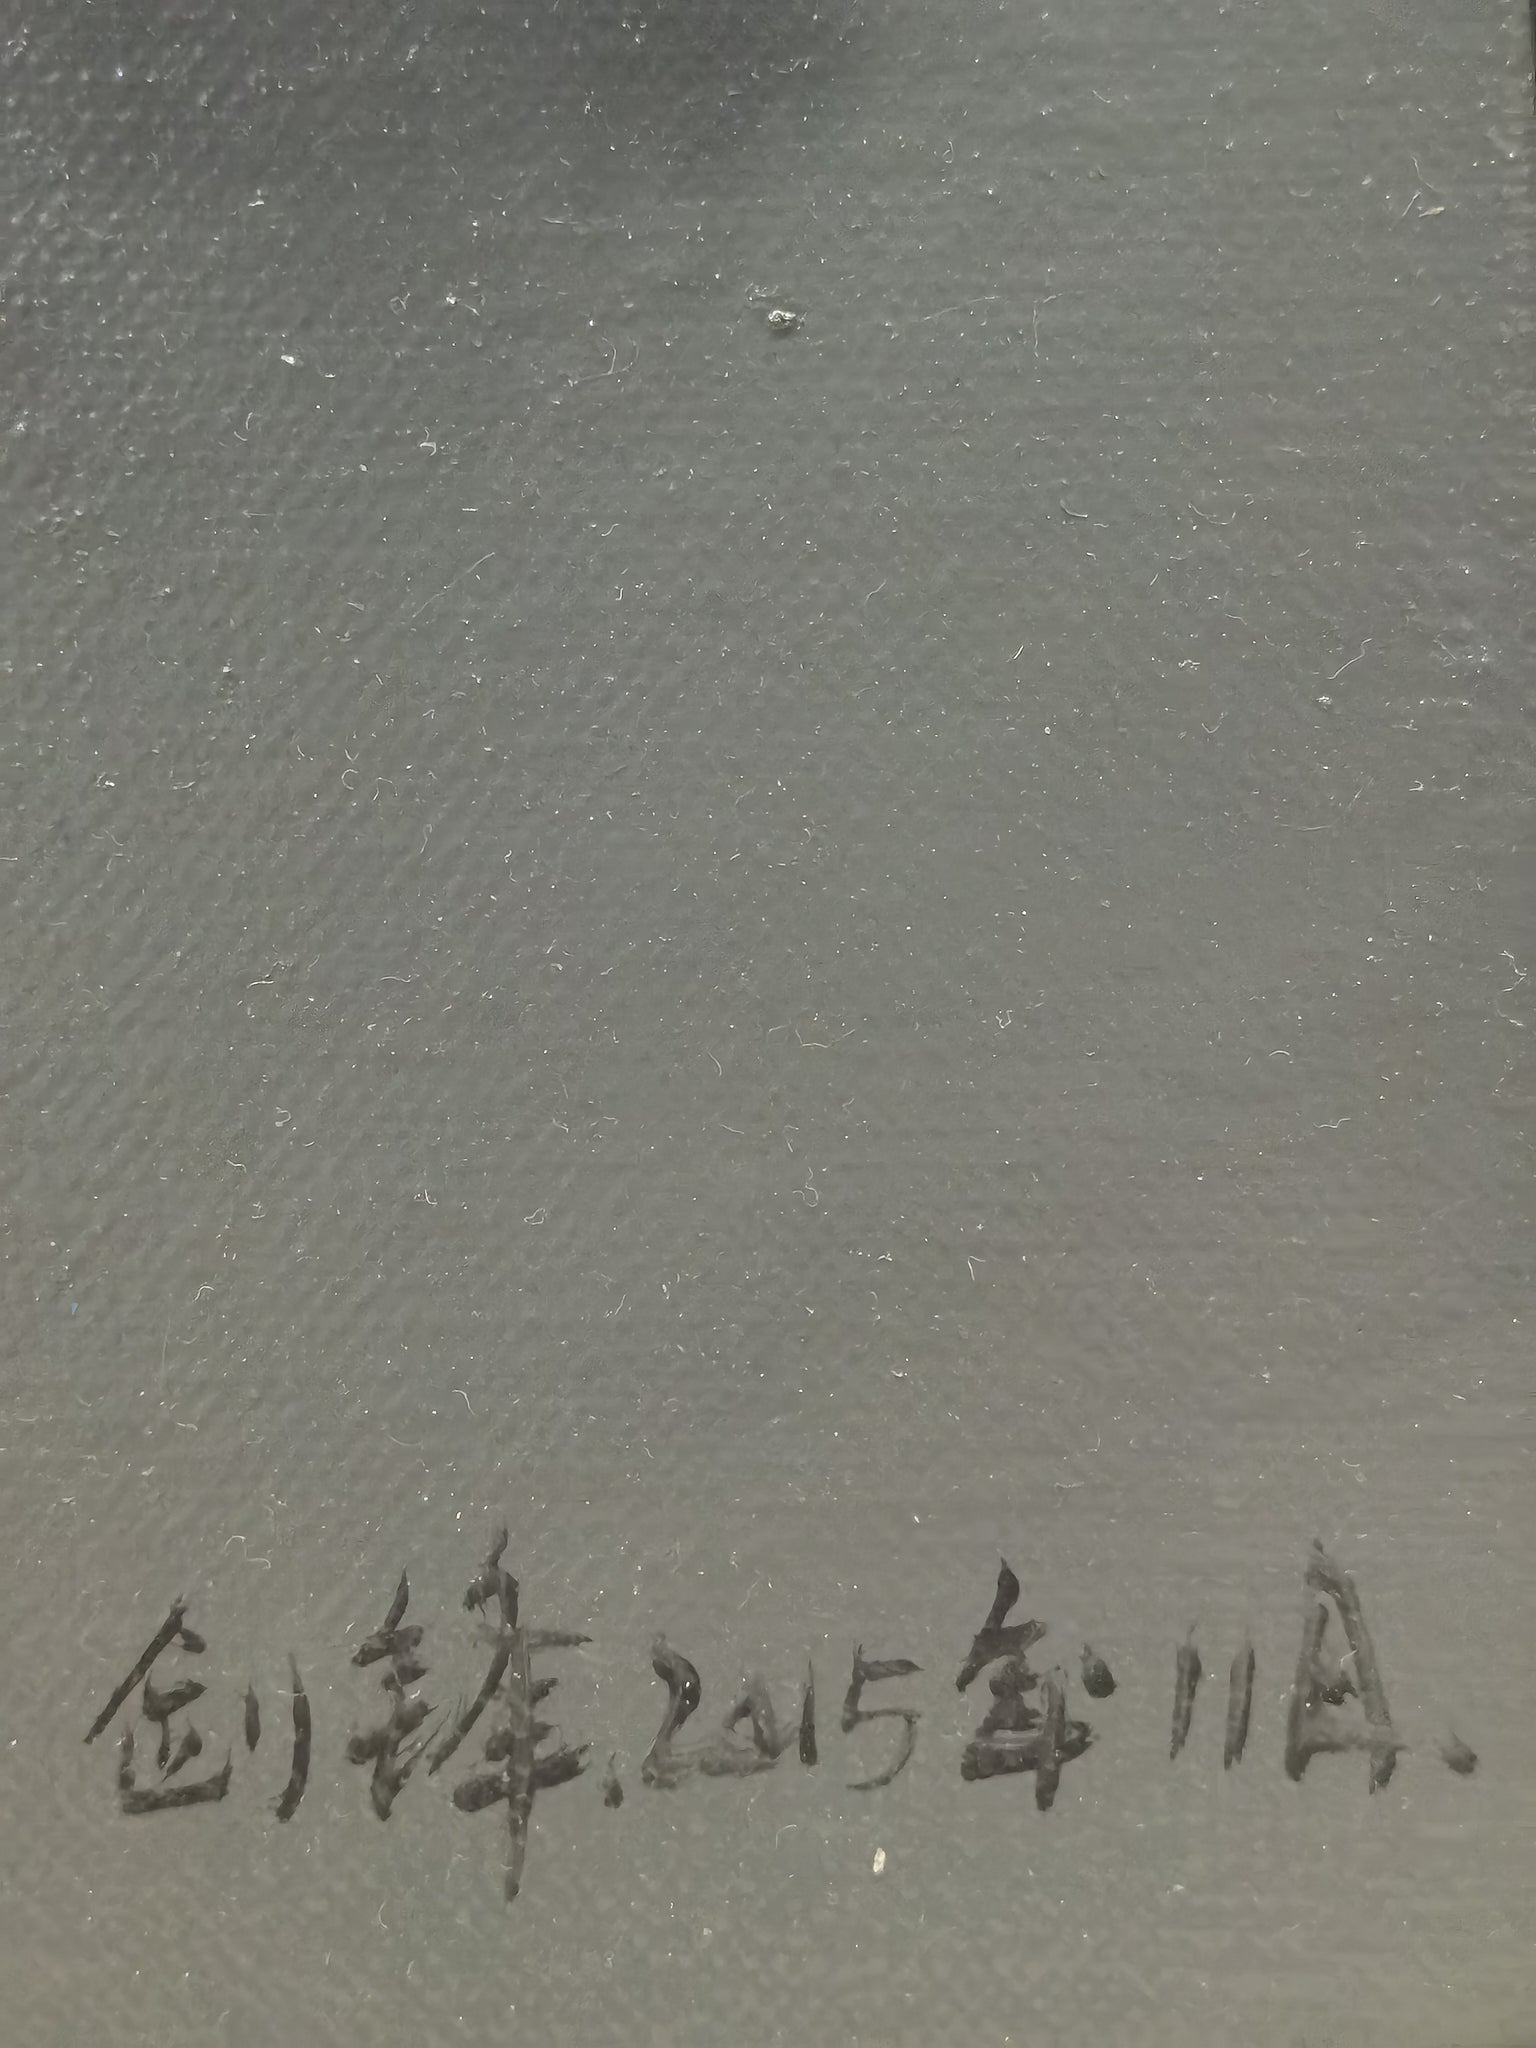 创锋.2015年.11月.